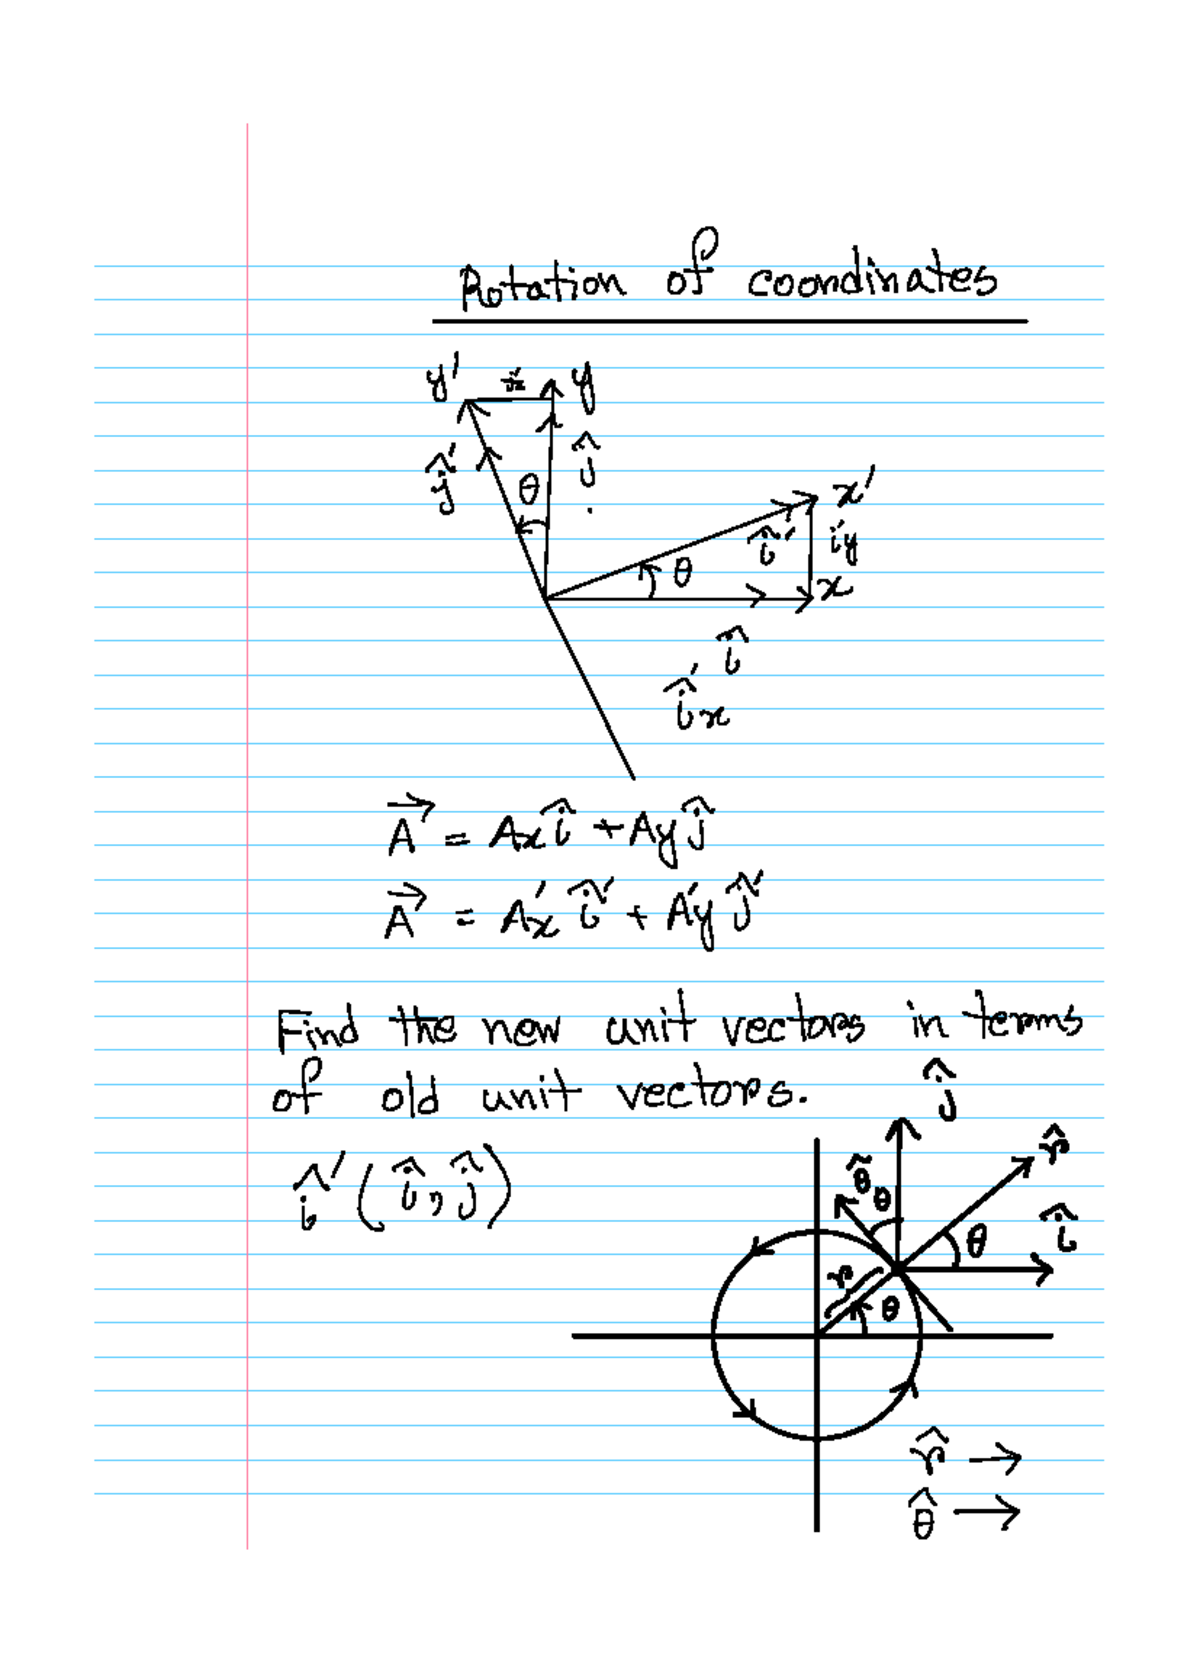 Rotation of coordinates
y' y
ĵ' θ ĵ
x'
î' i'y
θ x
î
î'x
A⃗ = Ax î + Ay ĵ
A⃗ = A'x î' + A'y ĵ'
Find the new unit vectors in terms
of old unit vectors. ĵ
î' (î, ĵ)
θ̂ θ r̂
θ î
r θ
r̂ →
θ̂ →